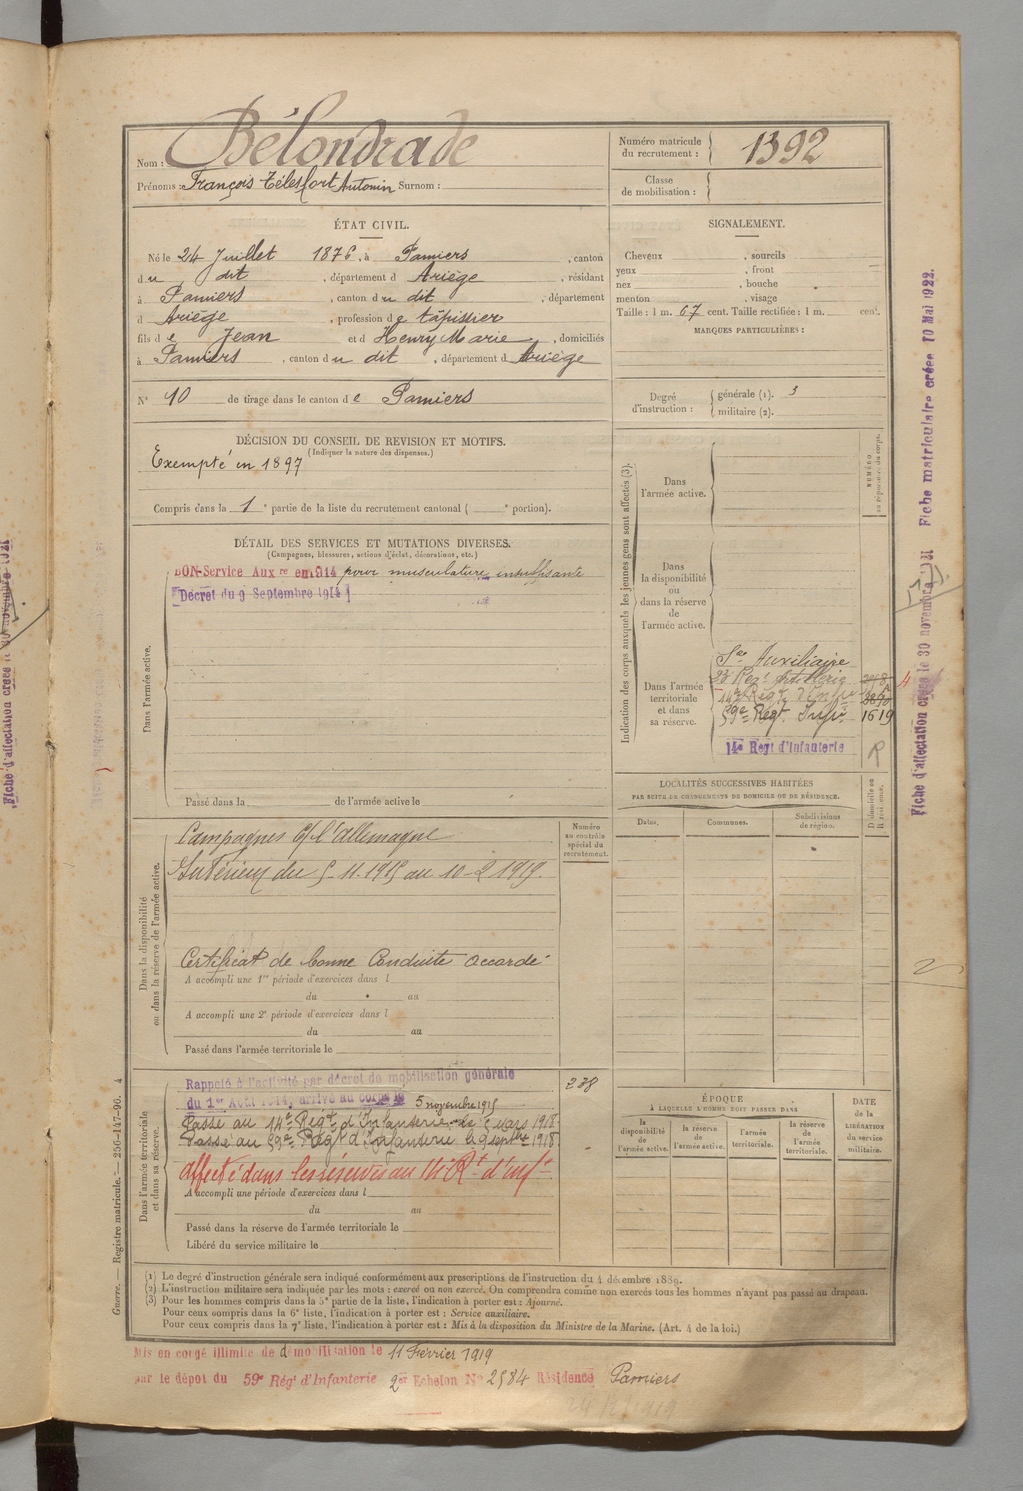 Nom : Bélondrade
Prénoms : François Télesfort Antonin Surnom :
Numéro matricule du recrutement : 1392
Classe de mobilisation :
ÉTAT CIVIL.
Né le 24 Juillet 1876, à Pamiers, canton
du dit, département d Ariège, résidant
à Pamiers, canton du dit, département
d Ariège, profession de tapissier
fils de Jean et d Henry Marie, domiciliés
à Pamiers, canton du dit, département d Ariège
N° 10 de tirage dans le canton de Pamiers
SIGNALEMENT.
Cheveux , sourcils
yeux , front
nez , bouche
menton , visage
Taille : 1 m. 67 cent. Taille rectifiée : 1 m. cent.
MARQUES PARTICULIÈRES :
Degré d'instruction : générale (1). 3
militaire (2).
DÉCISION DU CONSEIL DE REVISION ET MOTIFS.
(Indiquer la nature des dispenses.)
Exempté en 1897
Compris dans la 1e partie de la liste du recrutement cantonal ( e portion).
DÉTAIL DES SERVICES ET MUTATIONS DIVERSES.
(Campagnes, blessures, actions d'éclat, décorations, etc.)
BON-Service Auxre en 1914 pour musculature insuffisante
Décret du 9 Septembre 1914
Dans l'armée active.
Passé dans la de l'armée active le
Indication des corps auxquels les jeunes gens sont affectés (3).
NUMÉRO au répertoire du corps.
Dans l'armée active.
Dans la disponibilité ou dans la réserve de l'armée active.
Dans l'armée territoriale et dans sa réserve.
Sce Auxiliaire
23e Régt Artillerie
14e Régt d'Infie
59e Régt Infie 1619
14e Régt d'Infanterie R
LOCALITÉS SUCCESSIVES HABITÉES
PAR SUITE DE CHANGEMENTS DE DOMICILE OU DE RÉSIDENCE.
Dates. Communes. Subdivisions de région. D domicile ou R résidence.
Dans la disponibilité ou dans la réserve de l'armée active.
Numéro au contrôle spécial du recrutement.
Campagnes C/ l'allemagne
Intérieur du 5-11-1915 au 10-2 1919.
Certificat de bonne Conduite accordé
A accompli une 1re période d'exercices dans l
du au
A accompli une 2e période d'exercices dans l
du au
Passé dans l'armée territoriale le
Dans l'armée territoriale et dans sa réserve.
Rappelé à l'activité par décret de mobilisation générale 238
du 1er Août 1914, arrivé au corps le 5 novembre 1915
Passé au 14e Régt d'Infanterie le 5 mars 1918
Passé au 59e Régt d'Infanterie le 9 septbre 1918
affecté dans les réserves au 14e Rt d'infie
A accompli une période d'exercices dans l
du au
Passé dans la réserve de l'armée territoriale le
Libéré du service militaire le
ÉPOQUE
À LAQUELLE L'HOMME DOIT PASSER DANS
la disponibilité de l'armée active. la réserve de l'armée active. l'armée territoriale. la réserve de l'armée territoriale.
DATE de la LIBÉRATION du service militaire.
(1) Le degré d'instruction générale sera indiqué conformément aux prescriptions de l'instruction du 4 décembre 1889.
(2) L'instruction militaire sera indiquée par les mots : exercé ou non exercé. On comprendra comme non exercés tous les hommes n'ayant pas passé au drapeau.
(3) Pour les hommes compris dans la 5e partie de la liste, l'indication à porter est : Ajourné.
Pour ceux compris dans la 6e liste, l'indication à porter est : Service auxiliaire.
Pour ceux compris dans la 7e liste, l'indication à porter est : Mis à la disposition du Ministre de la Marine. (Art. 4 de la loi.)
Mis en congé illimité de démobilisation le 11 Février 1919
par le dépôt du 59e Régt d'Infanterie 2e Echelon N° 2584 Résidence Pamiers
Guerre. — Registre matricule. — 256-147-96. 4
Fiche d'affectation créée le 30 novembre 1921
Fiche matriculaire créée 10 Mai 1922.